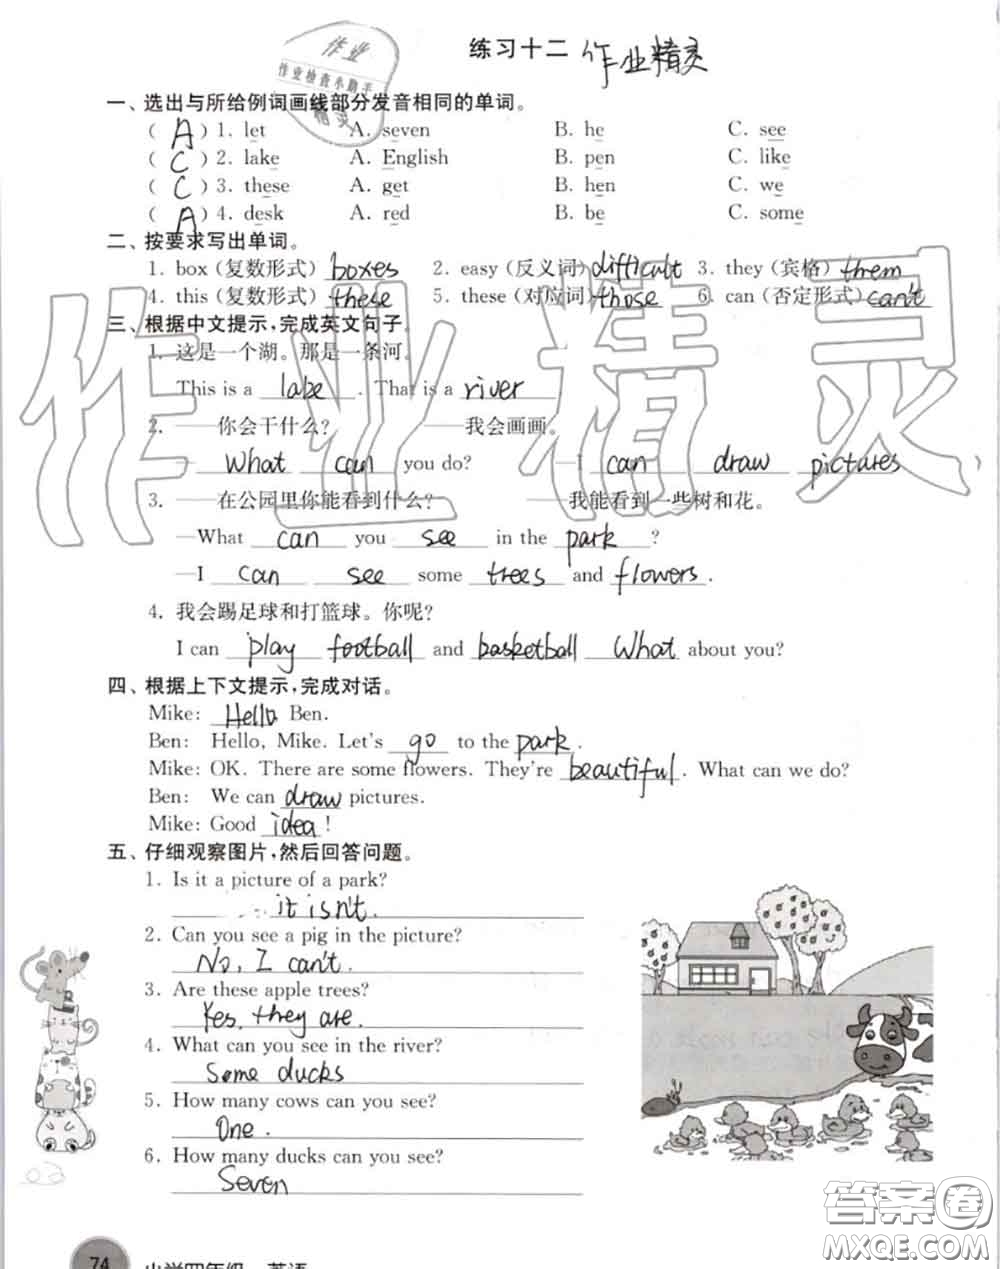 练习十二 作业精灵
作业
作业检查小助手
精灵
一、选出与所给例词画线部分发音相同的单词。
( A ) 1. let A. seven B. he C. see
( C ) 2. lake A. English B. pen C. like
( C ) 3. these A. get B. hen C. we
( A ) 4. desk A. red B. be C. some
二、按要求写出单词。
1. box (复数形式) boxes 2. easy (反义词) difficult 3. they (宾格) them
4. this (复数形式) these 5. these (对应词) those 6. can (否定形式) can't
三、根据中文提示,完成英文句子。
1. 这是一个湖。那是一条河。
This is a lake . That is a river
2. ——你会干什么? ——我会画画。
— What can you do? —I can draw pictures
3. ——在公园里你能看到什么? ——我能看到一些树和花。
—What can you see in the park ?
—I can see some trees and flowers .
4. 我会踢足球和打篮球。你呢?
I can play football and basketball What about you?
四、根据上下文提示,完成对话。
Mike: Hello Ben.
Ben: Hello, Mike. Let's go to the park .
Mike: OK. There are some flowers. They're beautiful . What can we do?
Ben: We can draw pictures.
Mike: Good idea !
五、仔细观察图片,然后回答问题。
1. Is it a picture of a park?
it isn't.
2. Can you see a pig in the picture?
No, I can't.
3. Are these apple trees?
Yes, they are.
4. What can you see in the river?
Some ducks
5. How many cows can you see?
One .
6. How many ducks can you see?
Seven
作业精灵
74 小学四年级 英语
答案卷
MXQE.COM